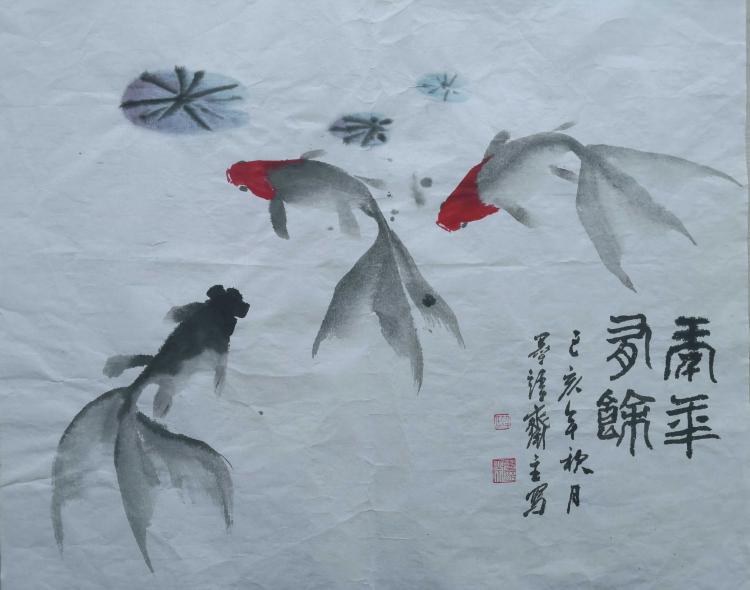 年年
有餘
己亥年秋月
墨齋主写